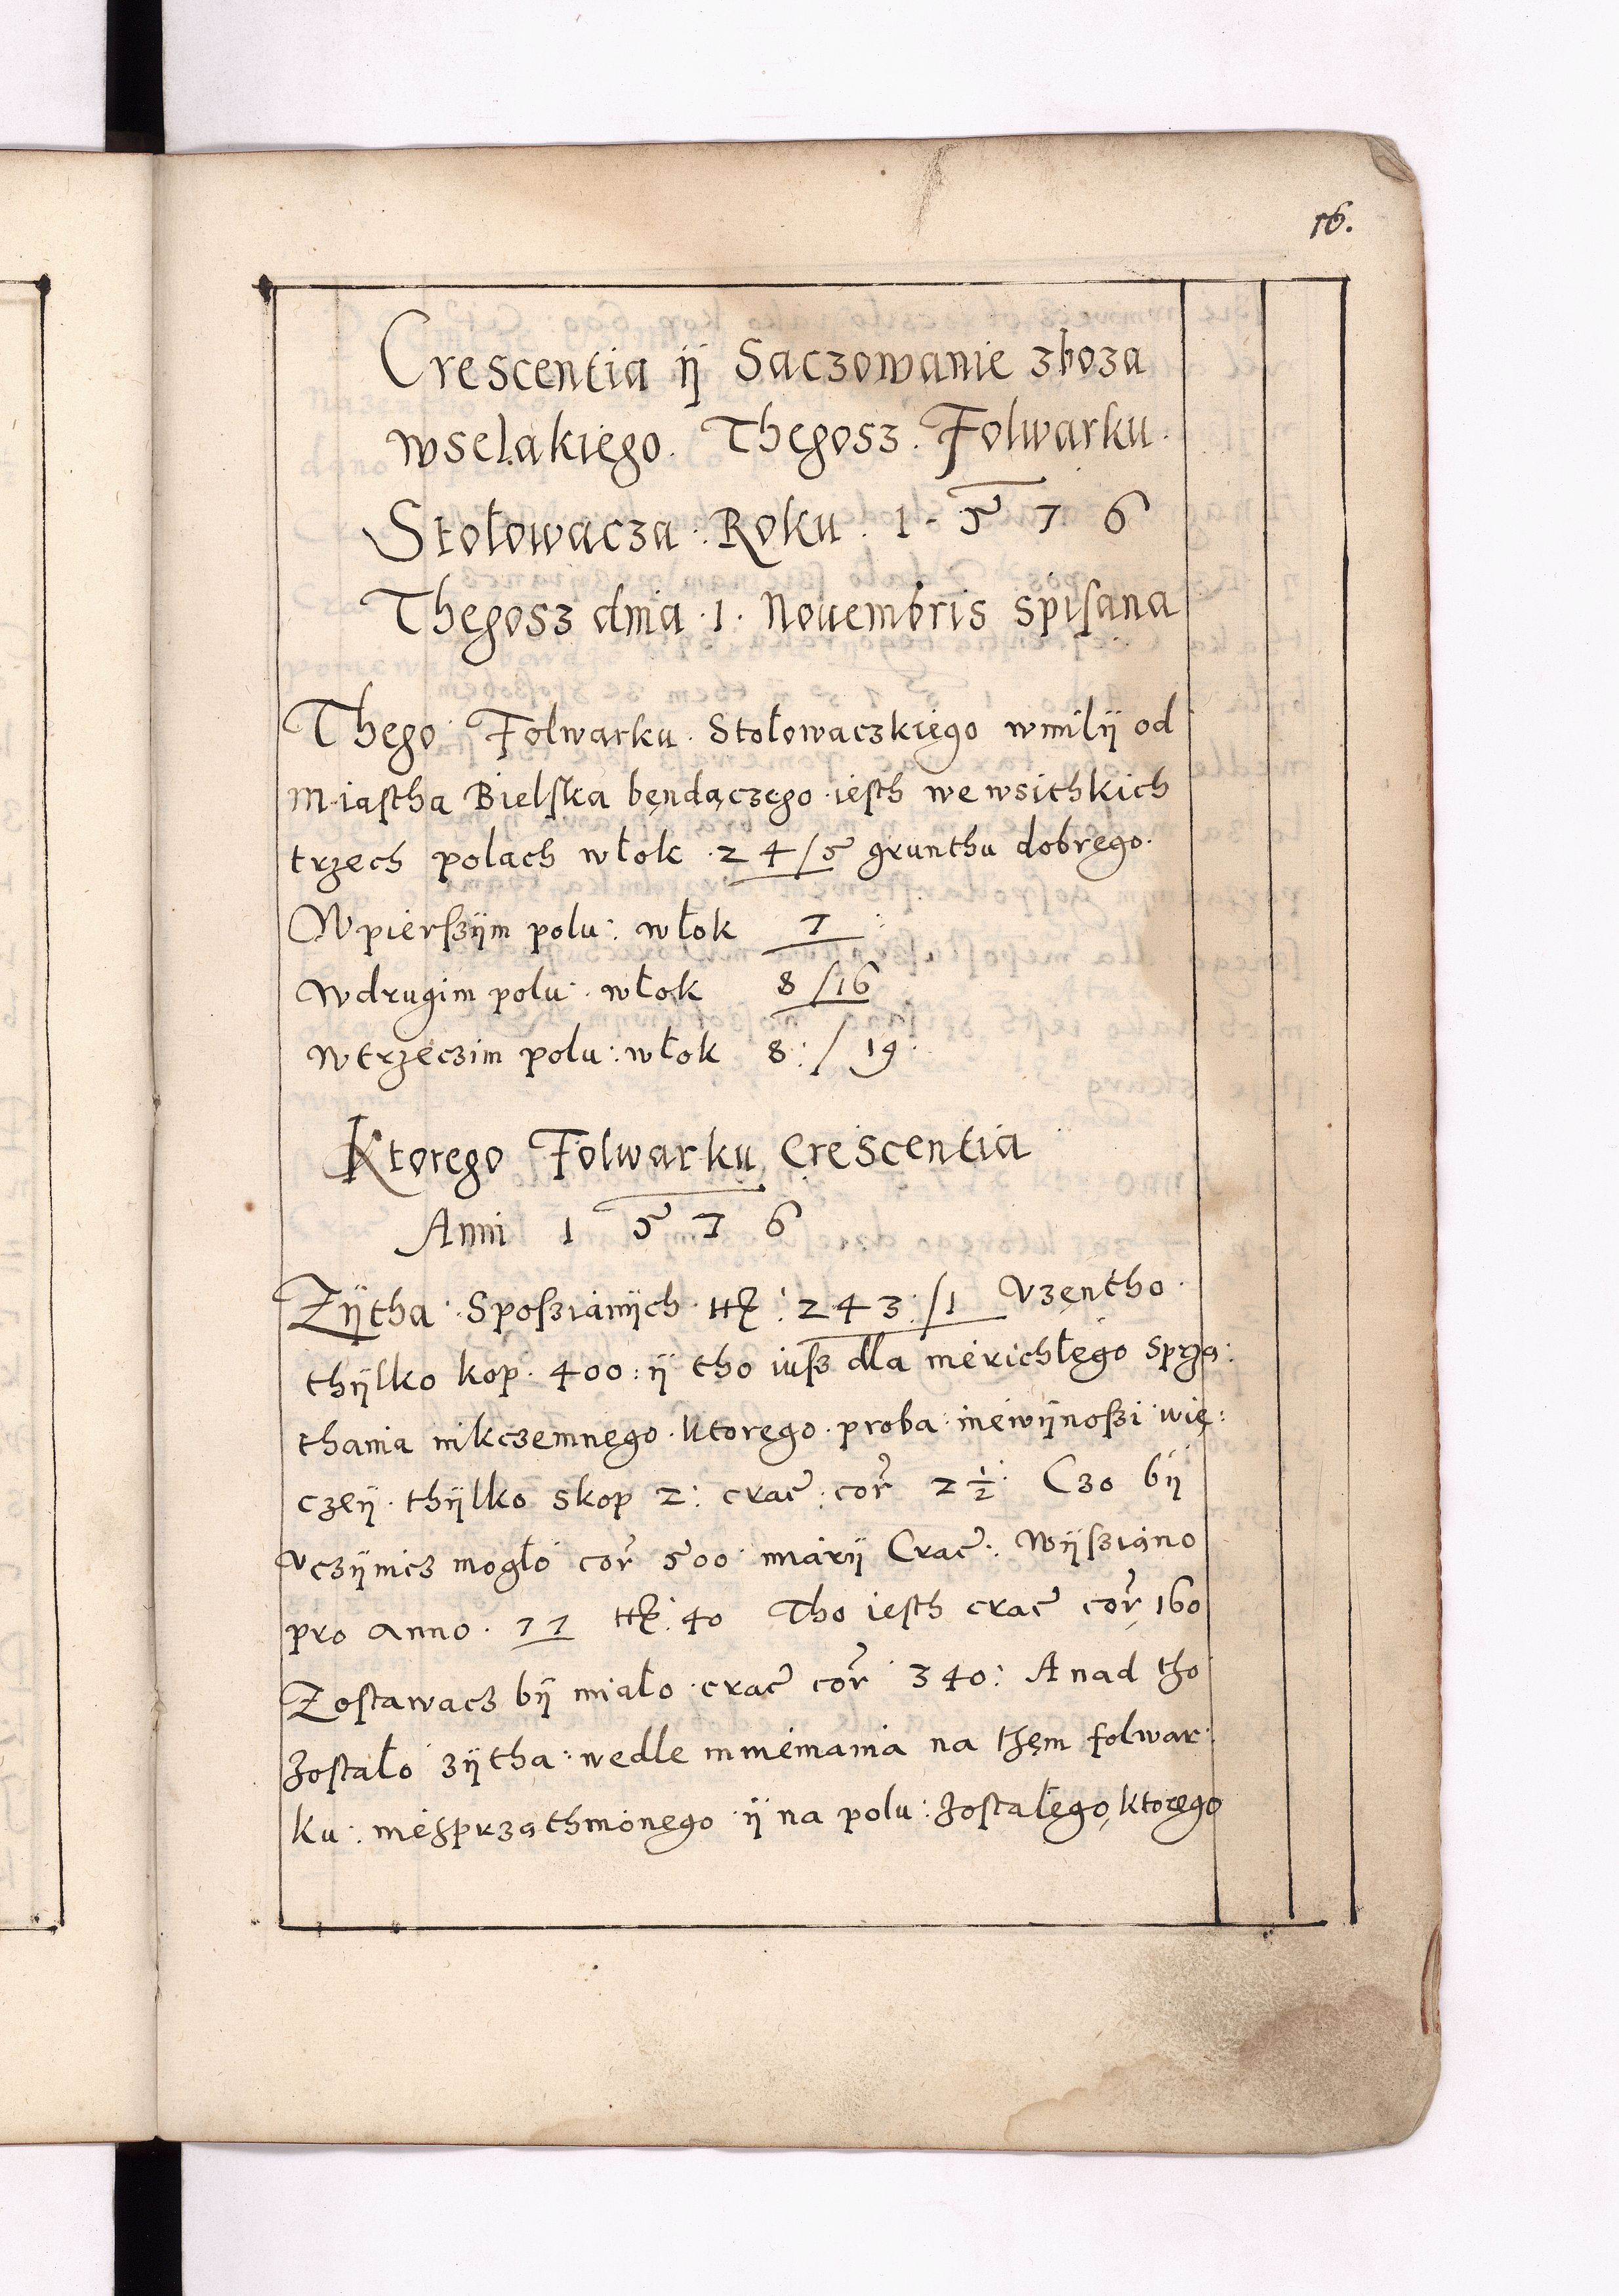 16.
Crescentia ij Saczowanie zboza
wselakiego. Thegosz. Folwarku.
Stołowacza: Roku. 1576
Thegosz dnia. 1. Nouembris spisana
Thego Folwarku. Stołowaczkiego wmilij od
Miastha Bielska bęndączego. iesth we wsithkich
trzech polach włok. 24/5 grunthu dobrego.
Wpierszijm polu: włok 7:
Wdrugim polu: włok 8/16
Wtrzeczim polu: włok 8:/19
Ktorego Folwarku Crescentia
Anni 1576
Zijtha. Sposzianijch. 243:/1 Vzentho.
thijlko kop. 400: ij tho iusz dla nierichłego Sprzą:
thania nikczemnego. ktorego. proba. niewijnoszi wię:
czeij. thijlko skop 2: crac: cor 2½. Czo bij
vczijnicz mogło cor 500 miarij Crac: Wijsziano
pro anno. 77 40 Tho iesth crac cor 160
Zostawacz bij miało. crac cor 340: A nad tho
zostało zijtha: wedle mniemania na thęm folwar:
ku: niesprzathnionego ij na polu: zostałego, ktorego